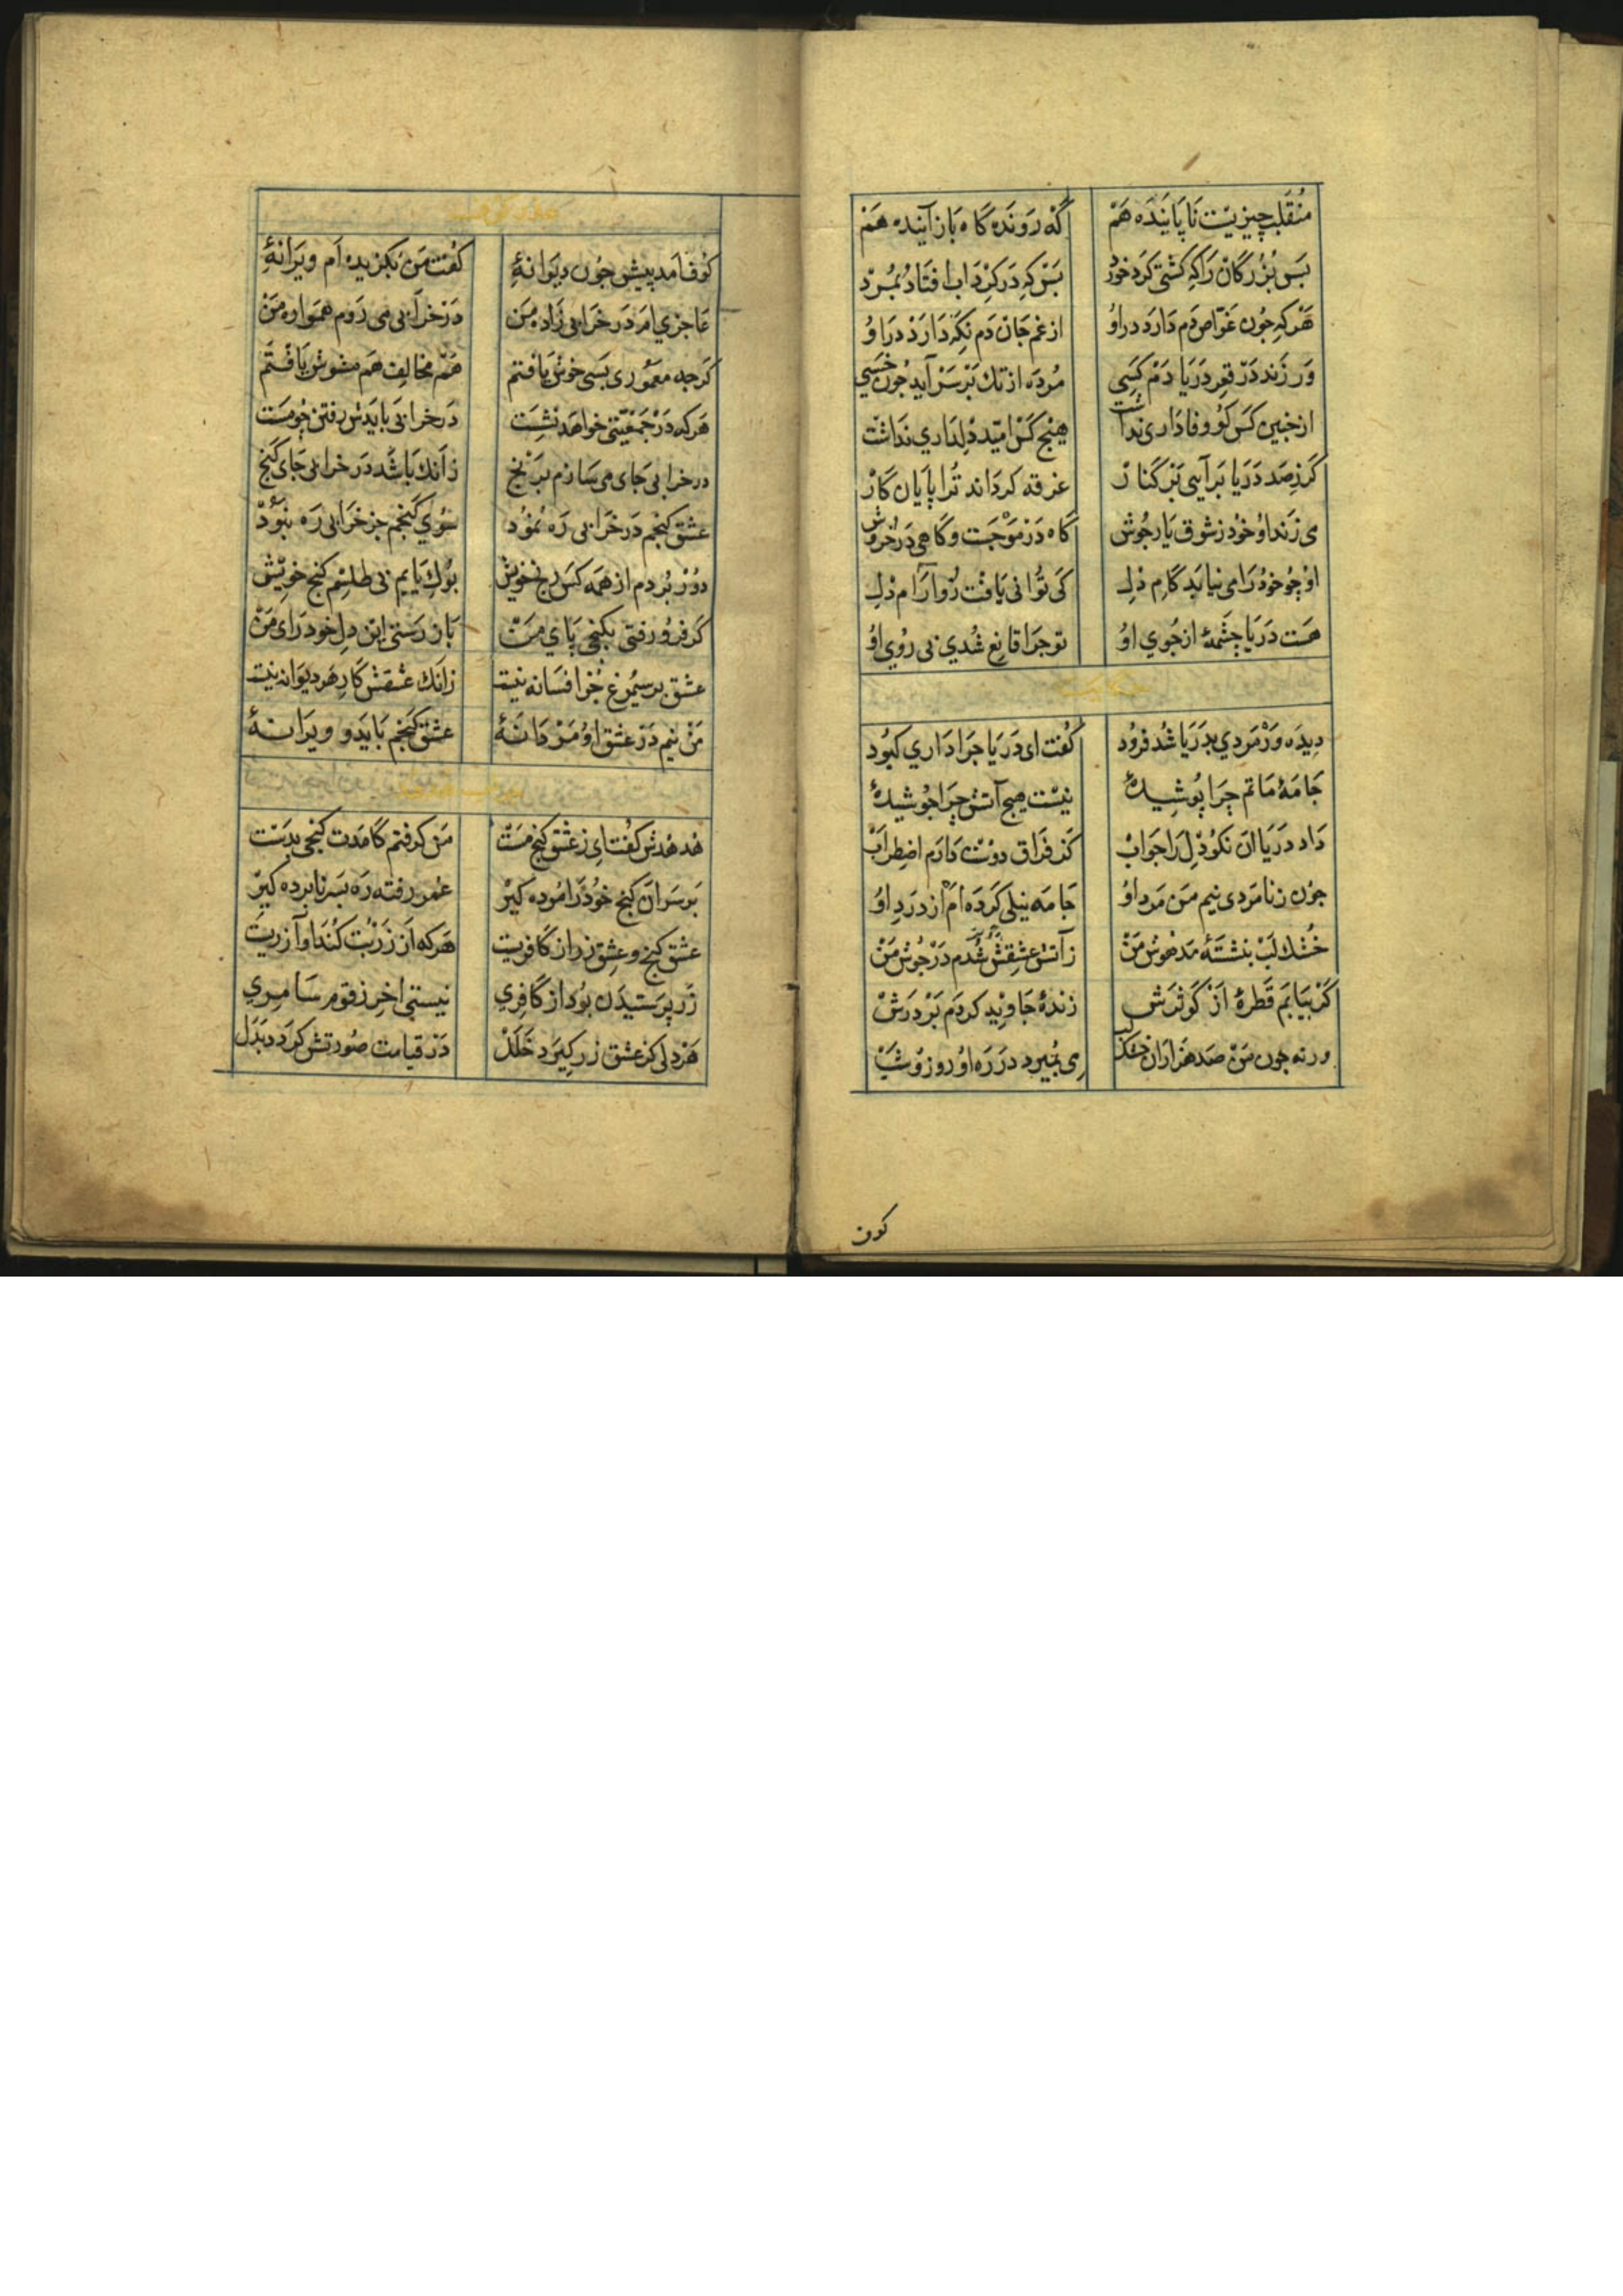 منقلب چیزیست ناپاینده هم گه رونده گاه باز آینده هم
بس بزرگان را که کشتی کرد خورد بس که در گرداب افتاد و بمرد
هرکه جون غواص دم دارد در او از غم جان دم نگه دارد در او
ور زند در قعر دریا دم کسی مرده از تک بر سر آید جون خسی
از جنین کس کو وفاداری نداشت هیج کس امید دلداری نداشت
کر ز صد دریا برآیی بر کنار غرقه کرداند ترا پایان کار
می زند او خود ز شوق یار جوش گاه در موجست و گاهی در خروش
او جو خود را می نیابد کام دل کی توانی یافت زو آرام دل
هست دریا جشمهٔ از جوی او تو جرا قانع شدی بی روی او
حکایت
دیده ور مردی بدریا شد فرود گفت ای دریا جرا داری کبود
جامهٔ ماتم چرا پوشیدهٔ نیست هیج آتش چرا جوشیدهٔ
داد دریا ان نکو دل را جواب کز فراق دوست دارم اضطراب
جون ز نامردی نیم من مرد او جامه نیلی کرده ام از درد او
خشك لب بنشستهٔ مدهوش من ز آتش عشقش شدم در جوش من
کر بیابم قطرهٔ از کوثرش زندهٔ جاوید کردم بر درش
ورنه جون من صد هزاران خشك لب می بمیرد در ره او روز و شب
کوف
کوف آمد پیش جون دیوانهٔ گفت من بگزیده ام ویرانهٔ
عاجزی ام در خرابی زاده من در خرابی می روم همواره من
کرجه معموری بسی خوش یافتم هم مخالف هم مشوش یافتم
هرکه در جمعیتی خواهد نشست در خرابی بایدش رفتن جو مست
در خرابی جای می سازم برنج زانك باشد در خرابی جای کنج
عشق کنجم در خرابی ره نمود سوی کنجم جز خرابی ره نبود
دور بردم از همه کس رنج خویش بوك یابم بی طلسم کنج خویش
کر فرو رفتی بکنجی پای من باز رستی این دل خودرای من
عشق بر سیمرغ جز افسانه نیست زانك عشقش کار هر دیوانه نیست
من نیم در عشق او مردانهٔ عشق کنجم باید و ویرانهٔ
هدهدش کفت ای ز عشق کنج مست من کرفتم کامدت کنجی بدست
بر سر ان کنج خود را مرده کیر عمر رفته ره بسر نابرده کیر
عشق کنج و عشق زر از کافریست هرکه از زر بت کند او آزریست
زر پرستیدن بود از کافری نیستی اخر ز قوم سامری
هر دلی کز عشق زر کیرد خلل در قیامت صورتش کردد بدل